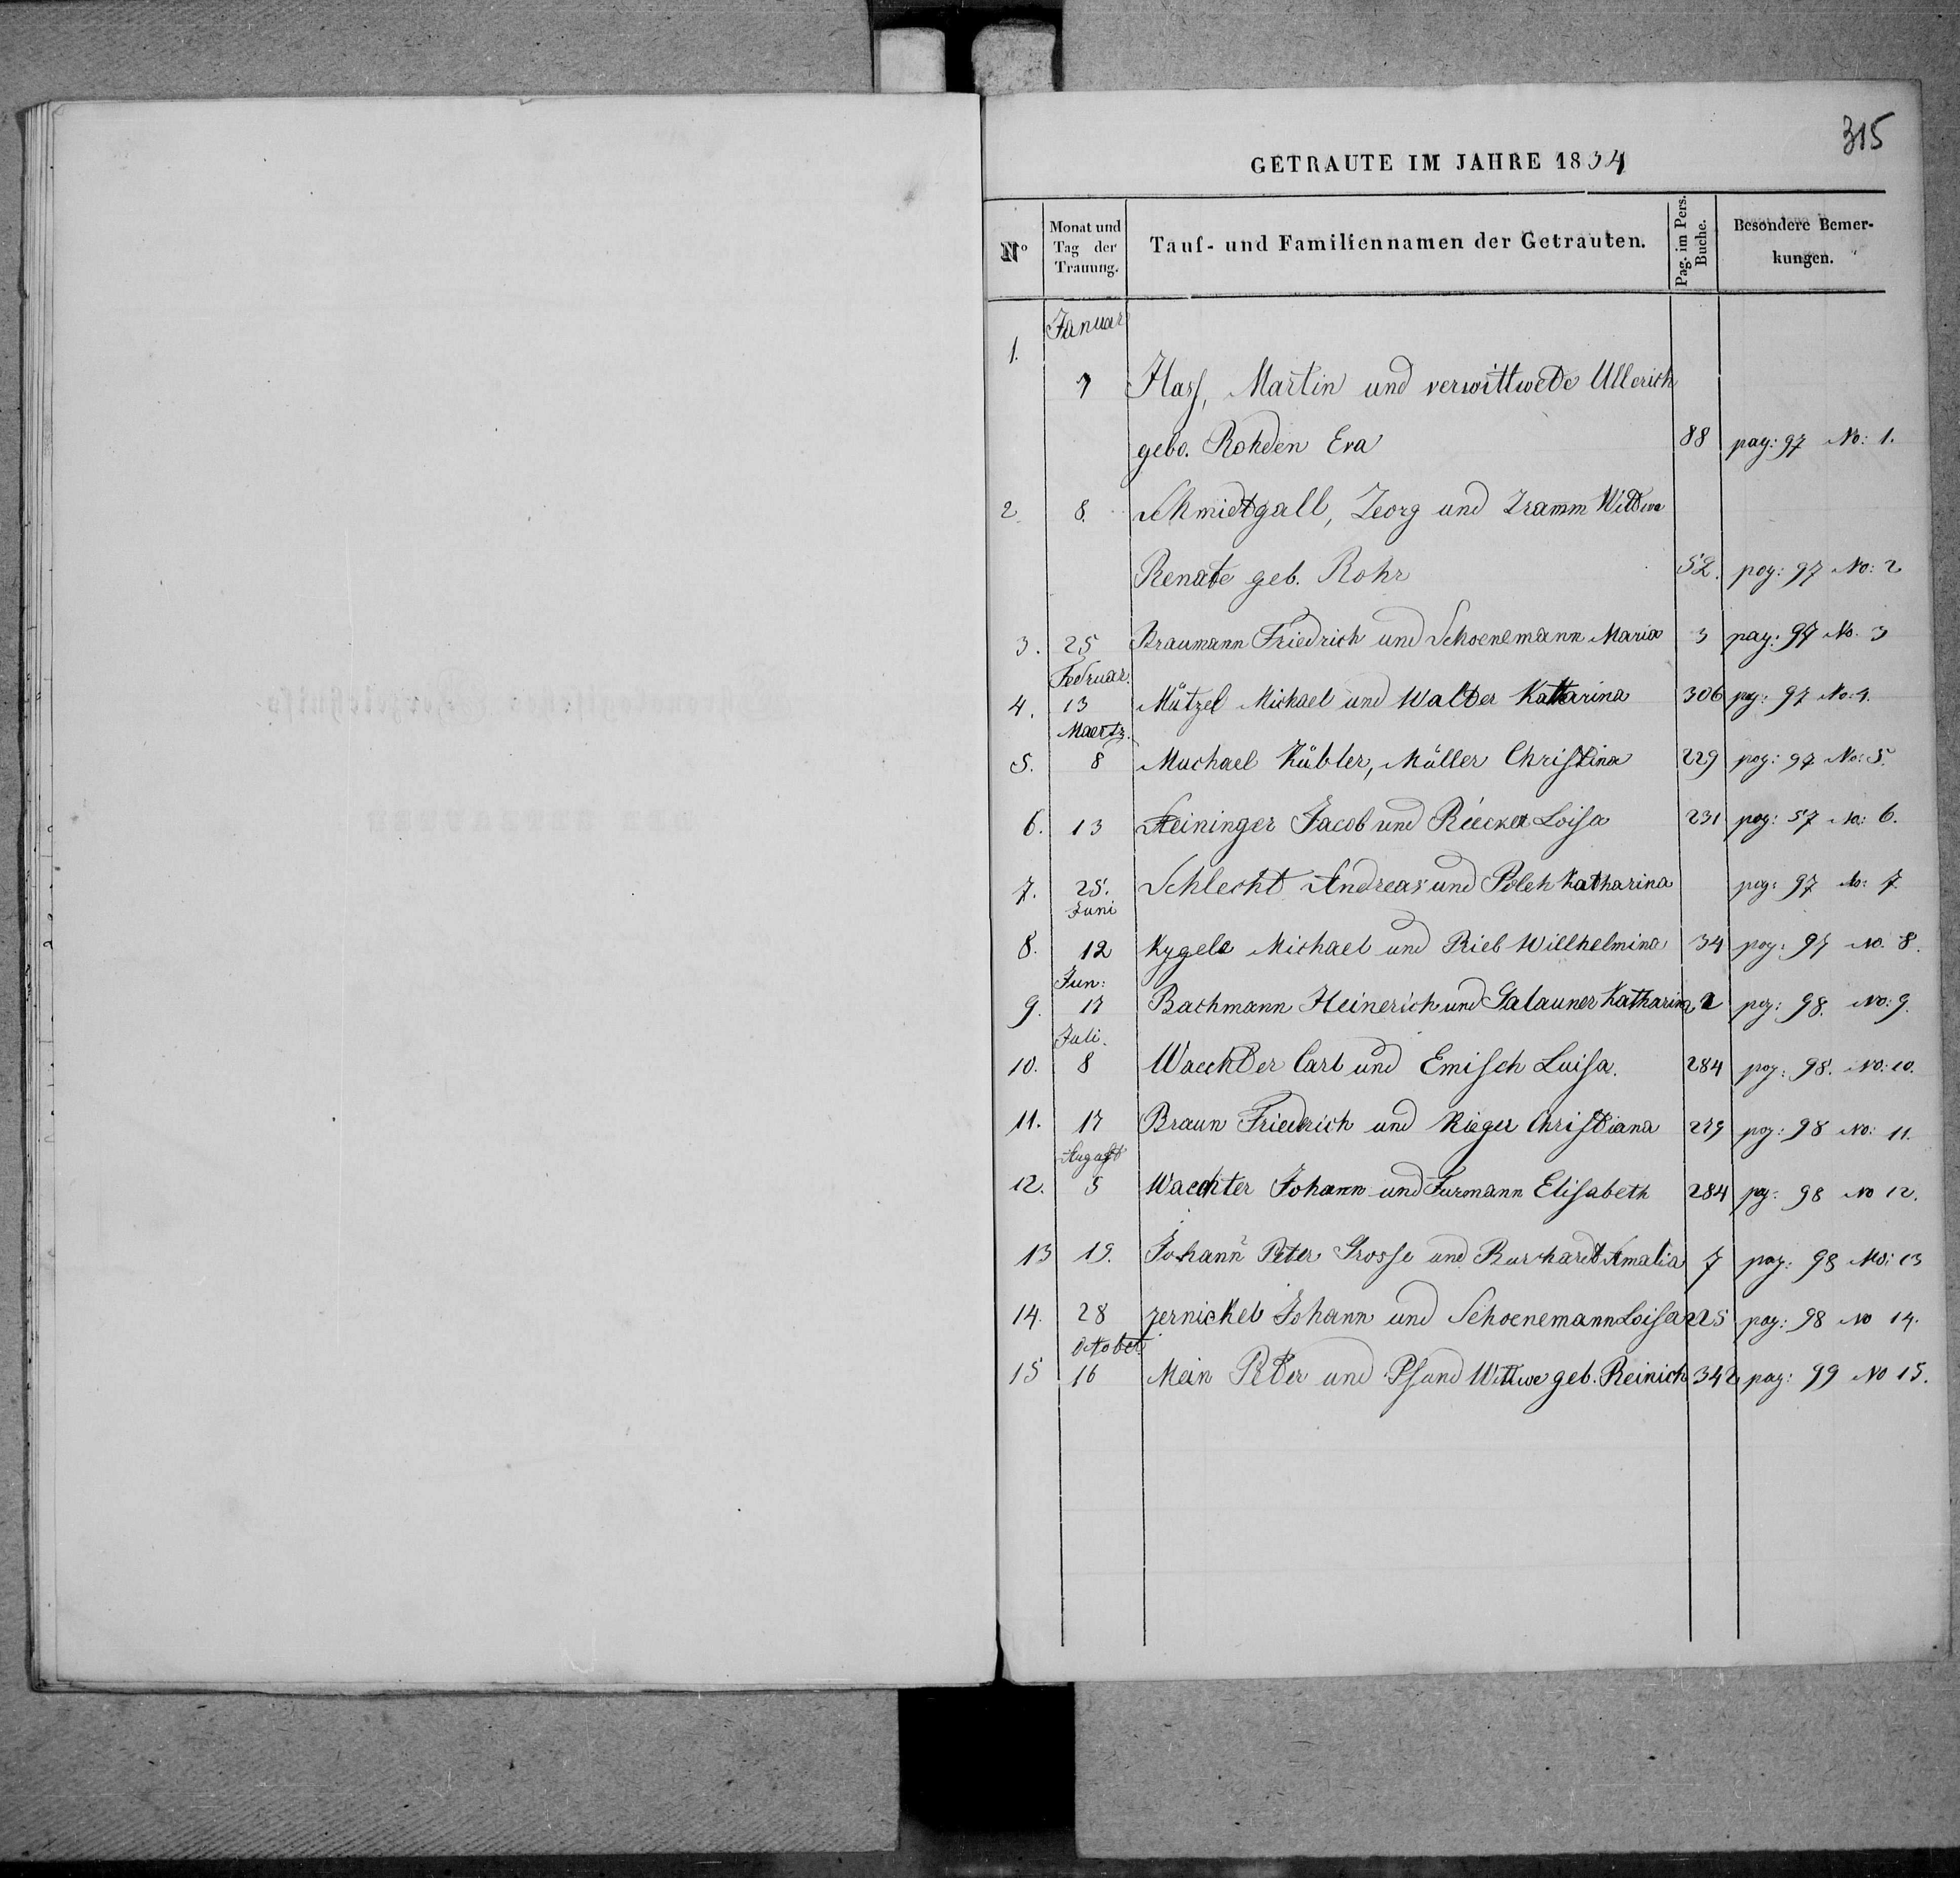 315
GETRAUTE IM JAHRE 1834
No Monat und Tag der Trauung. Tauf- und Familiennamen der Getrauten. Pag. im Pers. Buche. Besondere Bemerkungen.
Januar
1.
7 Hass, Martin und verwittwete Ullerich
geb. Rohden Eva 88 pag: 97 No: 1.
2. 8. Schmidtgall, Georg und Gramm Wittwe
Renate geb. Rohr 52. pag: 97 No: 2
3. 25 Braumann Friedrich und Schoenemann Maria 3 pag: 97 No. 3
Februar.
4. 13 Mützel Michael und Walter Kattarina 306 pag: 97 No: 4.
Maertz.
5. 8 Muchael Kübler, Müller Christina 229 pag: 97 No: 5.
6. 13 Steininger Jacob und Riecker Loisa 231 pag: 57 No: 6.
7. 25. Schlecht Andreas und Poleh Katharina pag: 97 No: 7
Juni
8. 12 Kygele Michael und Rieb Willhelmina 34 pag: 97 No. 8.
Jun:
9. 17 Bachmann Heinerich und Galauner Katharina 2 pag: 98. No: 9.
Juli.
10. 8 Waechter Carl und Emisch Luisa. 284 pag: 98. No: 10.
11. 17 Braun Friedrich und Rieger Christiana 279 pag: 98 No: 11.
August
12. 5 Waechter Johann und Furmann Elisabeth 284 pag: 98 No 12.
13 19. Johann Peter Grosse und Burchardt Amalia 7 pag: 98 No: 13
14. 28 Zernickel Johann und Schoenemann Loisa 225 pag: 98 No 14.
October.
15 16 Mein Peter und Pfund Wittwe geb. Reinich 342 pag: 99 No 15.